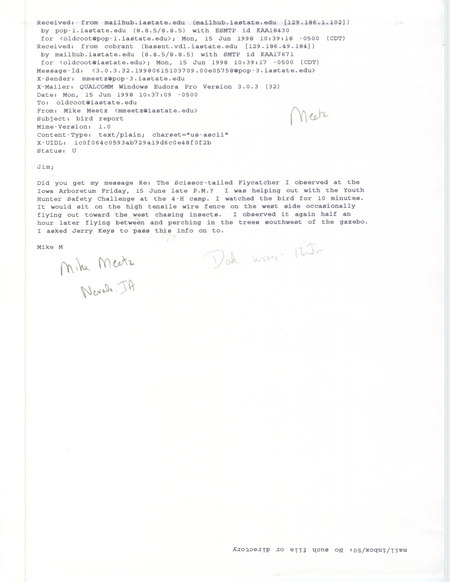 Received: from mailhub.iastate.edu (mailhub.iastate.edu [129.186.1.102])
by pop-1.iastate.edu (8.8.5/8.8.5) with ESMTP id KAA18430
for <oldcoot@pop-1.iastate.edu>; Mon, 15 Jun 1998 10:39:18 -0500 (CDT)
Received: from cobrant (basent.vdl.iastate.edu [129.186.49.184])
by mailhub.iastate.edu (8.8.5/8.8.5) with SMTP id KAA17671
for <oldcoot@iastate.edu>; Mon, 15 Jun 1998 10:39:17 -0500 (CDT)
Message-Id: <3.0.3.32.19980615103709.00e05758@pop-3.iastate.edu>
X-Sender: mmeetz@pop-3.iastate.edu
X-Mailer: QUALCOMM Windows Eudora Pro Version 3.0.3 (32)
Date: Mon, 15 Jun 1998 10:37:09 -0500
To: oldcoot@iastate.edu
From: Mike Meetz <mmeetz@iastate.edu>
Subject: bird report
Mime-Version: 1.0
Content-Type: text/plain; charset="us-ascii"
X-UIDL: 1c0f064c0593ab729a19d6c0e48f0f2b
Status: U
Meetz
Jim;
Did you get my message Re: The Scissor-tailed Flycatcher I observed at the
Iowa Arboretum Friday, 15 June late P.M.? I was helping out with the Youth
Hunter Safety Challenge at the 4-H camp. I watched the bird for 10 minutes.
It would sit on the high tensile wire fence on the west side occasionally
flying out toward the west chasing insects. I observed it again half an
hour later flying between and perching in the trees southwest of the gazebo.
I asked Jerry Keys to pass this info on to.
Mike M
Mike Meetz
Nevada, IA
wrong - 12 Ju
mail/inbox/50: No such file or directory